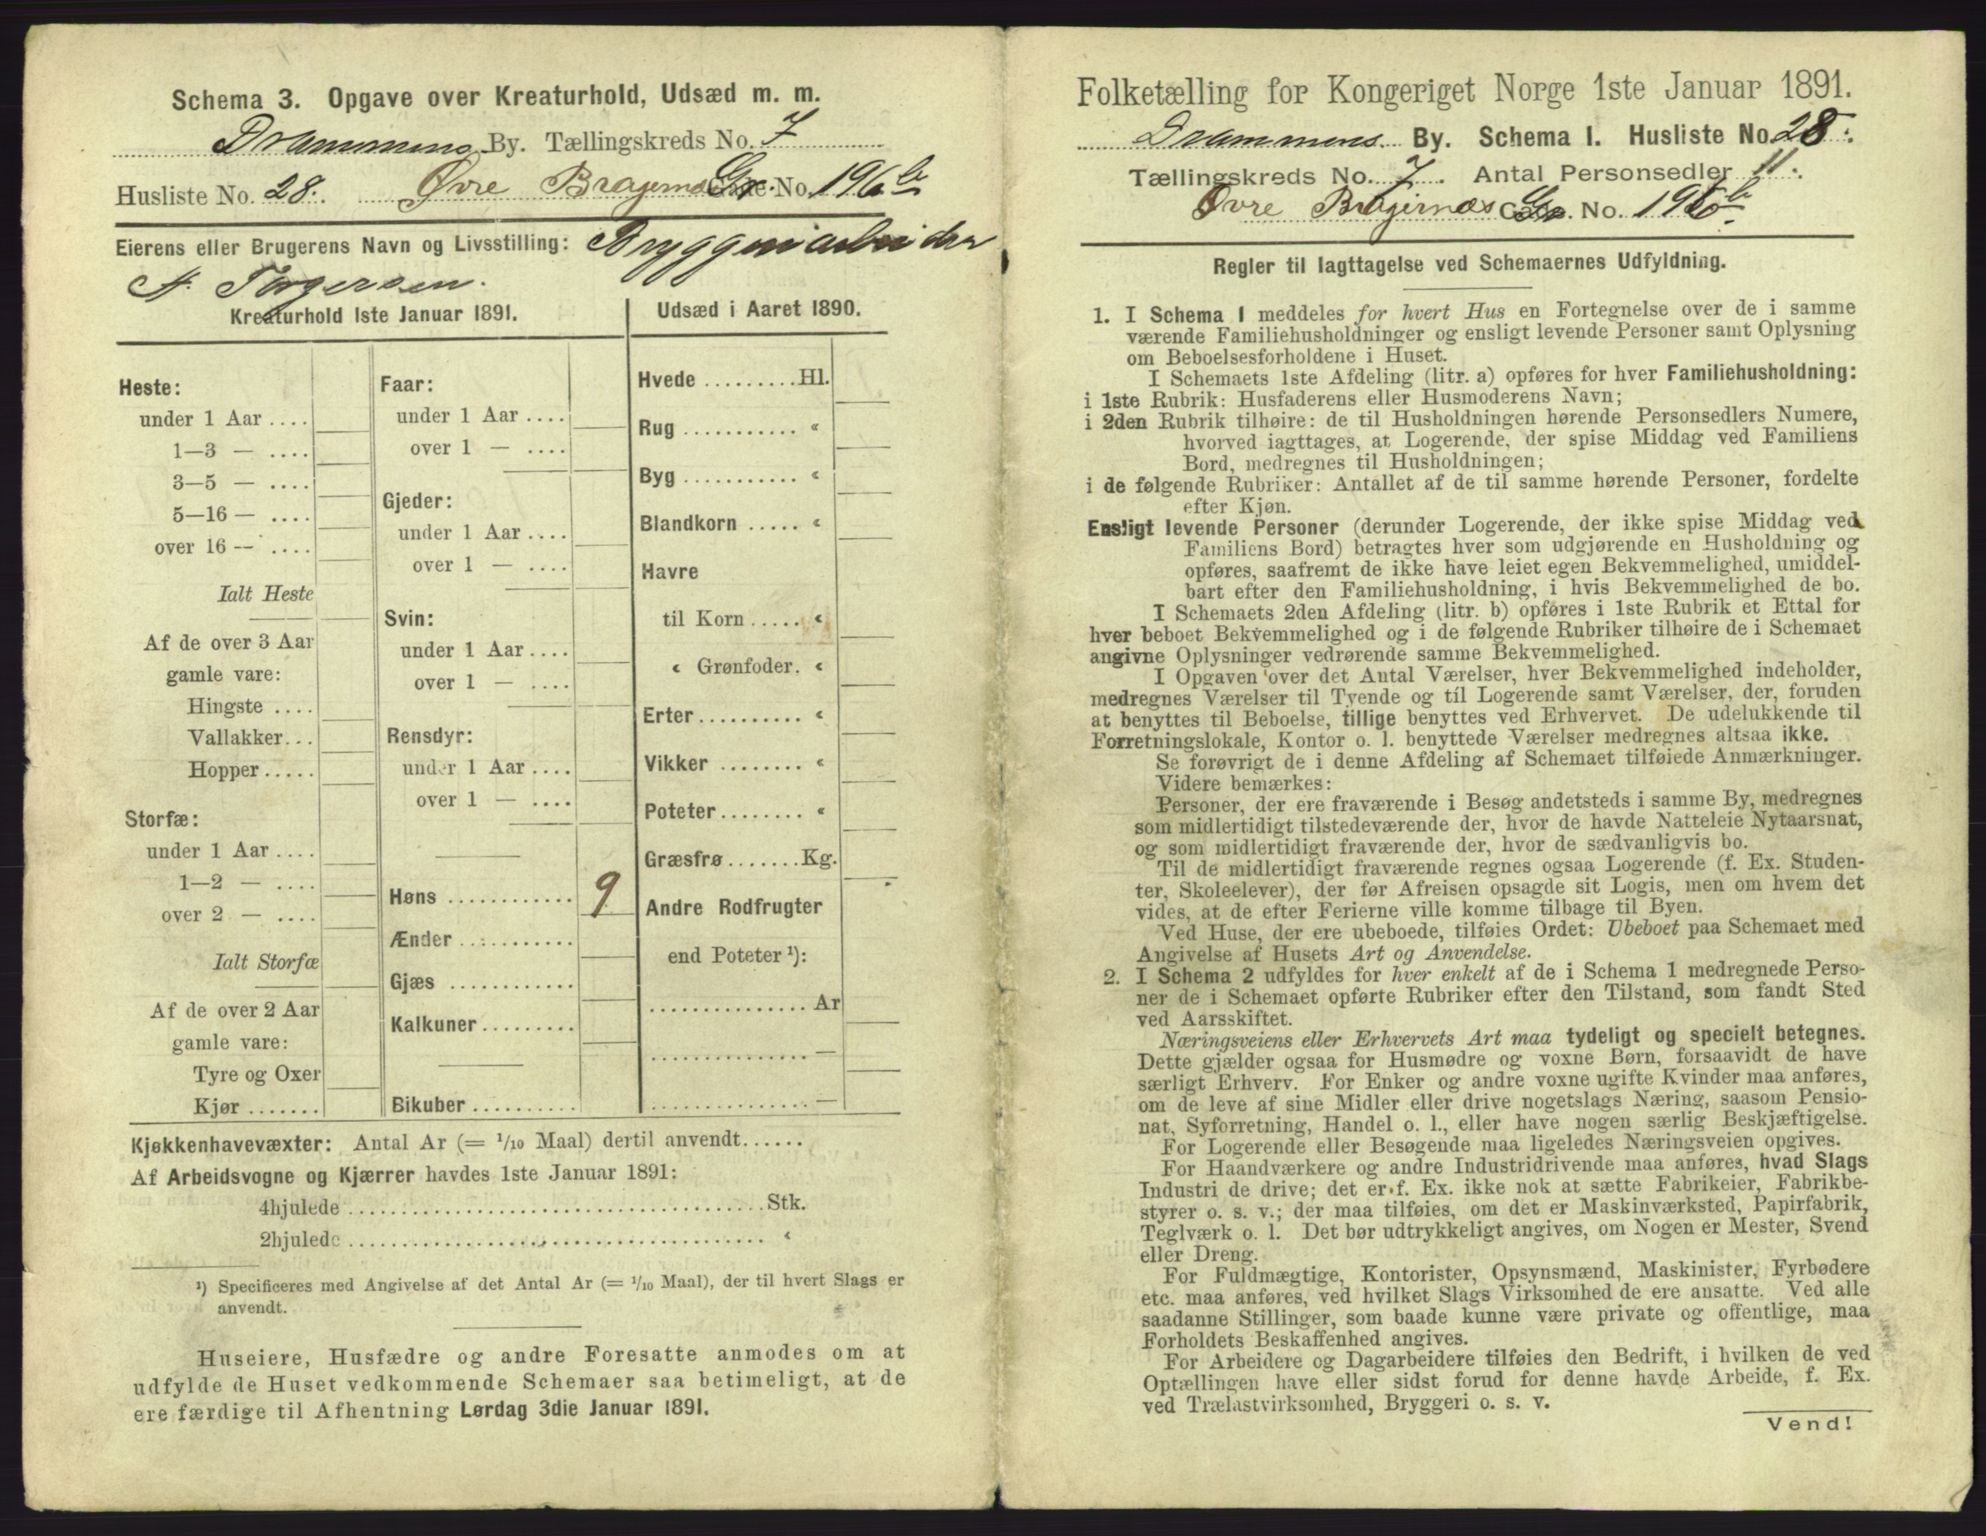 Schema 3. Opgave over Kreaturhold, Udsæd m. m.
Drammens By. Tællingskreds No. 7
Husliste No. 28. Øvre Bragernæs Gt. No. 196 b
Eierens eller Brugerens Navn og Livsstilling: Bryggeriarbeider
A. Torgersen.
Kreaturhold 1ste Januar 1891.
Heste:
under 1 Aar ....
1—3 — ....
3—5 — ....
5—16 — ....
over 16 — ....
Ialt Heste
Af de over 3 Aar
gamle vare:
Hingste ....
Vallakker...
Hopper.....
Storfæ:
under 1 Aar ....
1—2 — ....
over 2 — ....
Ialt Storfæ
Af de over 2 Aar
gamle vare:
Tyre og Oxer
Kjør .......
Faar:
under 1 Aar ....
over 1 — ....
Gjeder:
under 1 Aar ....
over 1 — ....
Svin:
under 1 Aar ....
over 1 — ....
Rensdyr:
under 1 Aar ....
over 1 — ....
Høns ............ 9
Ænder ............
Gjæs ............
Kalkuner.........
Bikuber ..........
Udsæd i Aaret 1890.
Hvede .........Hl.
Rug ........... «
Byg ........... «
Blandkorn ..... «
Havre
til Korn ..... «
« Grønfoder. «
Erter.......... «
Vikker ........ «
Poteter........ «
Græsfrø .......Kg.
Andre Rodfrugter
end Poteter ¹):
............... Ar
............... —
............... —
Kjøkkenhavevæxter: Antal Ar (= 1/10 Maal) dertil anvendt......
Af Arbeidsvogne og Kjærrer havdes 1ste Januar 1891:
4hjulede ........................................ Stk.
2hjulede ........................................ «
¹) Specificeres med Angivelse af det Antal Ar (= 1/10 Maal), der til hvert Slags er
anvendt.
Huseiere, Husfædre og andre Foresatte anmodes om at
udfylde de Huset vedkommende Schemaer saa betimeligt, at de
ere færdige til Afhentning Lørdag 3die Januar 1891.
Folketælling for Kongeriget Norge 1ste Januar 1891.
Drammens By. Schema I. Husliste No. 28.
Tællingskreds No. 7. Antal Personsedler 11.
Øvre Bragernæs Gt. No. 196 b
Regler til Iagttagelse ved Schemaernes Udfyldning.
1. I Schema I meddeles for hvert Hus en Fortegnelse over de i samme
værende Familiehusholdninger og ensligt levende Personer samt Oplysning
om Beboelsesforholdene i Huset.
I Schemaets 1ste Afdeling (litr. a) opføres for hver Familiehusholdning:
i 1ste Rubrik: Husfaderens eller Husmoderens Navn;
i 2den Rubrik tilhøire: de til Husholdningen hørende Personsedlers Numere,
hvorved iagttages, at Logerende, der spise Middag ved Familiens
Bord, medregnes til Husholdningen;
i de følgende Rubriker: Antallet af de til samme hørende Personer, fordelte
efter Kjøn.
Ensligt levende Personer (derunder Logerende, der ikke spise Middag ved
Familiens Bord) betragtes hver som udgjørende en Husholdning og
opføres, saafremt de ikke have leiet egen Bekvemmelighed, umiddel-
bart efter den Familiehusholdning, i hvis Bekvemmelighed de bo.
I Schemaets 2den Afdeling (litr. b) opføres i 1ste Rubrik et Ettal for
hver beboet Bekvemmelighed og i de følgende Rubriker tilhøire de i Schemaet
angivne Oplysninger vedrørende samme Bekvemmelighed.
I Opgaven over det Antal Værelser, hver Bekvemmelighed indeholder,
medregnes Værelser til Tyende og til Logerende samt Værelser, der, foruden
at benyttes til Beboelse, tillige benyttes ved Erhvervet. De udelukkende til
Forretningslokale, Kontor o. l. benyttede Værelser medregnes altsaa ikke.
Se forøvrigt de i denne Afdeling af Schemaet tilføiede Anmærkninger.
Videre bemærkes:
Personer, der ere fraværende i Besøg andetsteds i samme By, medregnes
som midlertidigt tilstedeværende der, hvor de havde Natteleie Nytaarsnat,
og som midlertidigt fraværende der, hvor de sædvanligvis bo.
Til de midlertidigt fraværende regnes ogsaa Logerende (f. Ex. Studen-
ter, Skoleelever), der før Afreisen opsagde sit Logis, men om hvem det
vides, at de efter Ferierne ville komme tilbage til Byen.
Ved Huse, der ere ubeboede, tilføies Ordet: Ubeboet paa Schemaet med
Angivelse af Husets Art og Anvendelse.
2. I Schema 2 udfyldes for hver enkelt af de i Schema 1 medregnede Perso-
ner de i Schemaet opførte Rubriker efter den Tilstand, som fandt Sted
ved Aarsskiftet.
Næringsveiens eller Erhvervets Art maa tydeligt og specielt betegnes.
Dette gjælder ogsaa for Husmødre og voxne Børn, forsaavidt de have
særligt Erhverv. For Enker og andre voxne ugifte Kvinder maa anføres,
om de leve af sine Midler eller drive nogetslags Næring, saasom Pensio-
nat, Syforretning, Handel o. l., eller have nogen særlig Beskjæftigelse.
For Logerende eller Besøgende maa ligeledes Næringsveien opgives.
For Haandværkere og andre Industridrivende maa anføres, hvad Slags
Industri de drive; det er f. Ex. ikke nok at sætte Fabrikeier, Fabrikbe-
styrer o. s. v.; der maa tilføies, om det er Maskinværksted, Papirfabrik,
Teglværk o. l. Det bør udtrykkeligt angives, om Nogen er Mester, Svend
eller Dreng.
For Fuldmægtige, Kontorister, Opsynsmænd, Maskinister, Fyrbødere
etc. maa anføres, ved hvilket Slags Virksomhed de ere ansatte. Ved alle
saadanne Stillinger, som baade kunne være private og offentlige, maa
Forholdets Beskaffenhed angives.
For Arbeidere og Dagarbeidere tilføies den Bedrift, i hvilken de ved
Optællingen have eller sidst forud for denne havde Arbeide, f. Ex.
ved Trælastvirksomhed, Bryggeri o. s. v.
Vend!